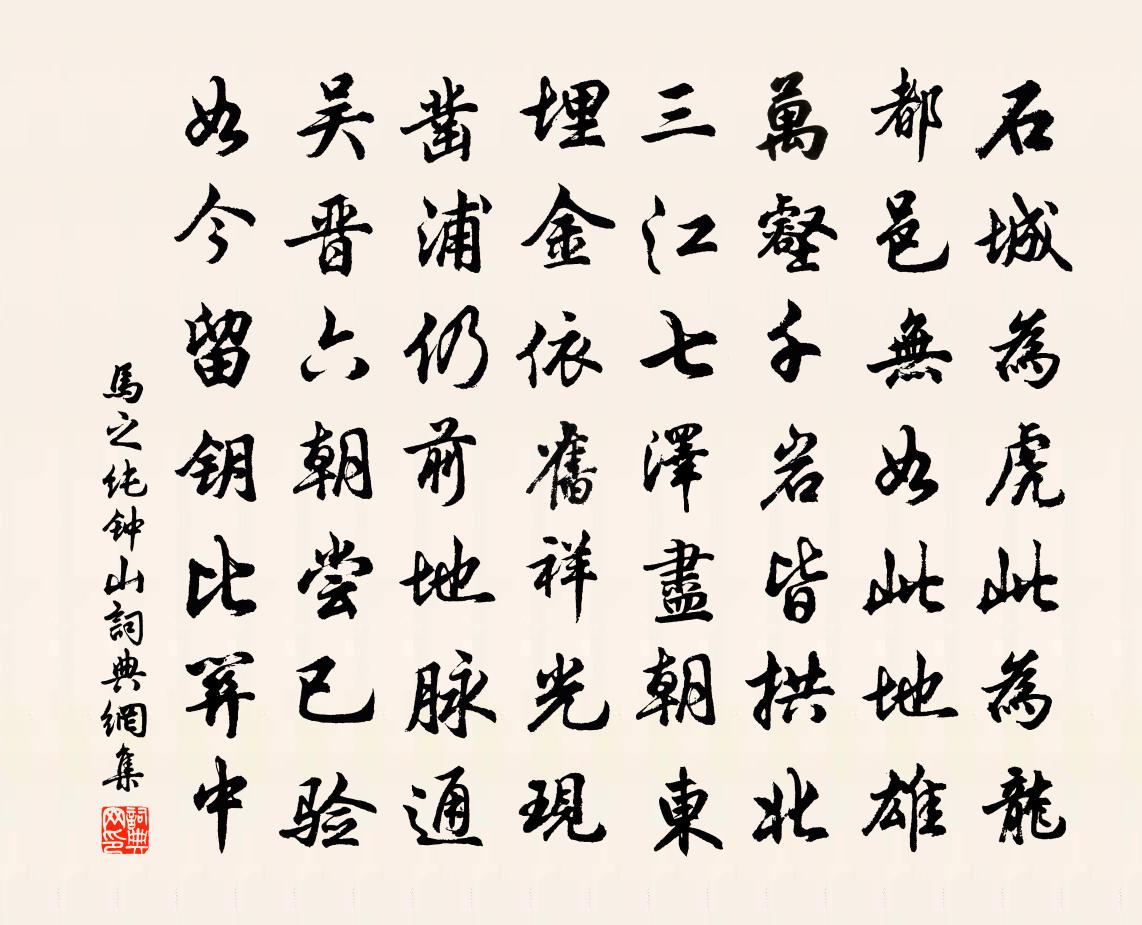 石城為虎此為龍
都邑無如此地雄
萬壑千岩皆拱北
三江七澤盡朝東
埋金依舊祥光現
凿浦仍前地脉通
吴晋六朝尝已验
如今留钥比笄中
馬之纯钟山詞典網集
詞典网印